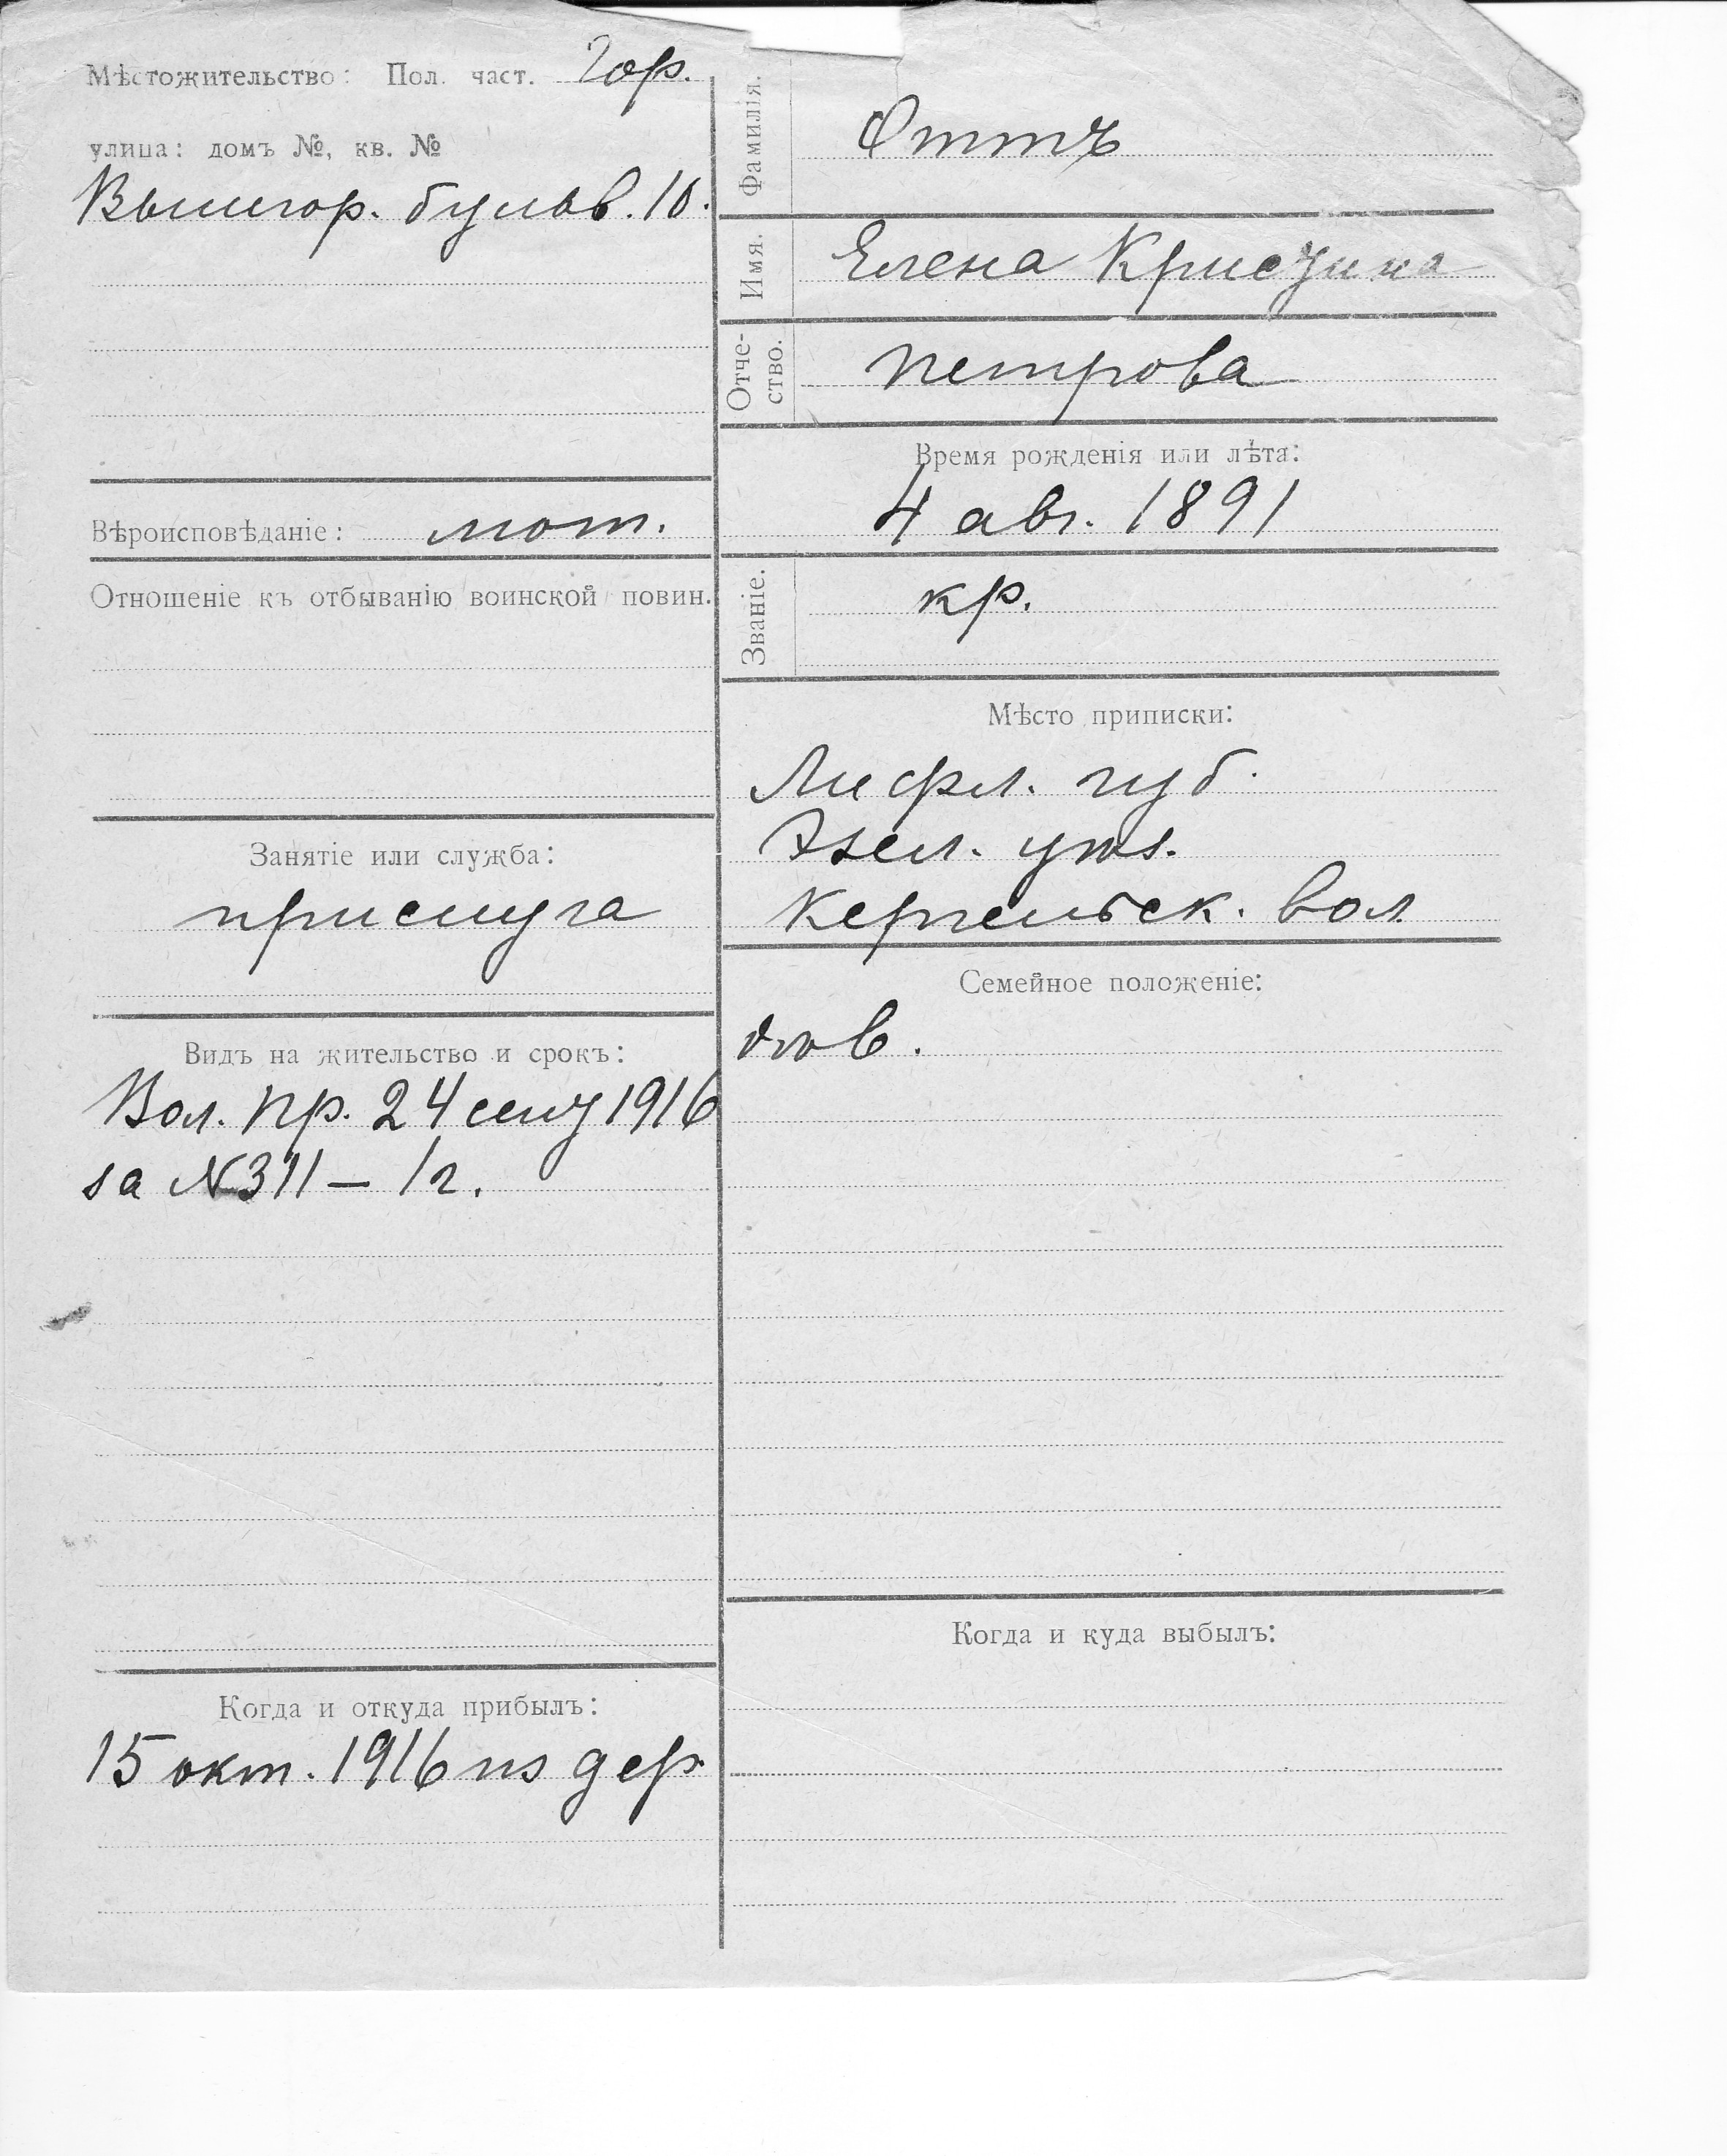 Мѣстожительство: Пол. част. Гор.
улица: домъ №, кв. №
Вышгор. бульв. 10.
Вѣроисповѣданіе: лют.
Отношеніе къ отбыванію воинской повин.
Занятіе или служба:
прислуга
Видъ на жительство и срокъ:
Вол. пр. 24 сент 1916
за № 311 — 1 г.
Когда и откуда прибылъ:
15 окт. 1916 из дер.
Фамилія. Оттъ
Имя. Елена Кристина
Отче-
ство. Петрова
Время рожденія или лѣта:
4 авг. 1891
Званіе. кр.
Мѣсто приписки:
Лифл. губ.
Эзел. уѣз.
Кергельск. вол
Семейное положеніе:
Когда и куда выбылъ: